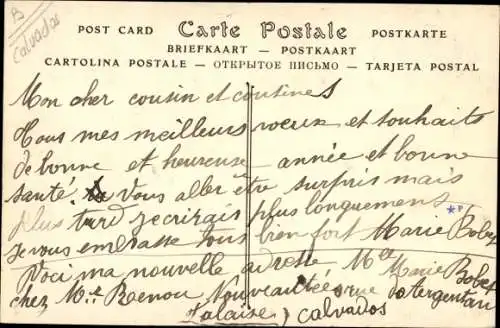 B
Calvados
POST CARD Carte Postale POSTKARTE
BRIEFKAART — POSTKAART
CARTOLINA POSTALE — ОТКРЫТОЕ ПИСЬМО — TARJETA POSTAL
Mon cher cousin et cousines
Tous mes meilleurs voeux et souhaits
de bonne et heureuse année et bonne
santé. Vous aller être surpris mais
plus tard jecrirais plus longuement
Je vous embrasse tous bien fort Marie Bobet
Voci ma nouvelle adresse Mlle Marie Bobet
chez Mme Renou Nouveautée rue d'Argentan
Falaise Calvados